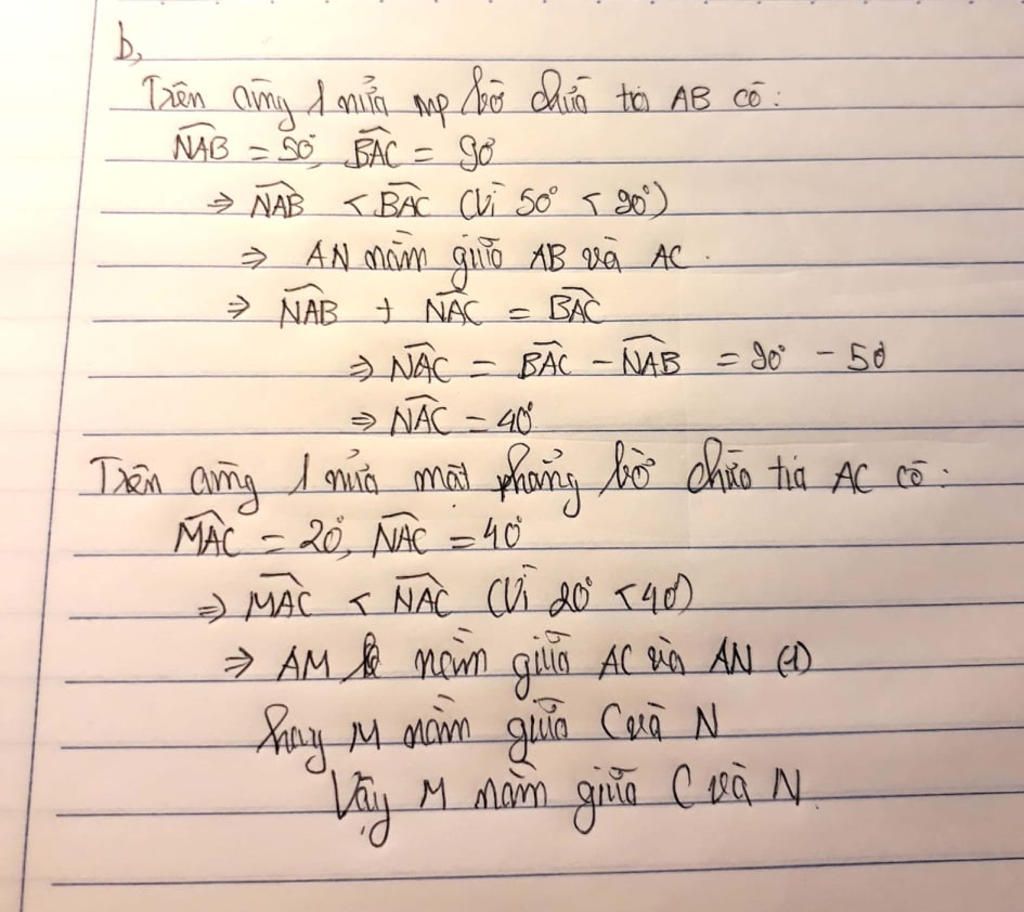 b,
Trên cùng 1 nửa mp bờ chứa tia AB có:
NAB = 50°, BAC = 90°
⇒ NAB < BAC (Vì 50° < 90°)
⇒ AN nằm giữa AB và AC.
⇒ NAB + NAC = BAC
⇒ NAC = BAC - NAB = 90° - 50°
⇒ NAC = 40°
Trên cùng 1 nửa mặt phẳng bờ chứa tia AC có:
MAC = 20°, NAC = 40°
⇒ MAC < NAC (Vì 20° < 40°)
⇒ AM nằm giữa AC và AN (1)
hay M nằm giữa C và N
Vậy M nằm giữa C và N.